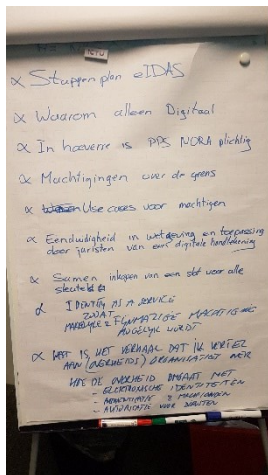 ∝ Stappenplan eIDAS
∝ Waarom alleen Digitaal
∝ In hoeverre is PPS NORA plichtig
∝ Machtigingen over de grens
∝ Use cases voor machtigen
∝ Eenduidigheid in wetgeving en toepassing
door juristen van een digitale handtekening
∝ Samen inkopen van een slot voor alle
sleutels
∝ IDENTITY AS A SERVICE
ZODAT
MAKKELIJKE & FIJNMAZIGE MACHTIGING
MOGELIJK WORDT
∝ WAT IS HET VERHAAL DAT IK VERTEL
AAN (OVERHEIDS) ORGANISATIES OVER
HOE DE OVERHEID OMGAAT MET
- ELEKTRONISCHE IDENTITEITEN
- & MACHTIGINGEN
- AUTORISATIE VOOR DIENSTEN